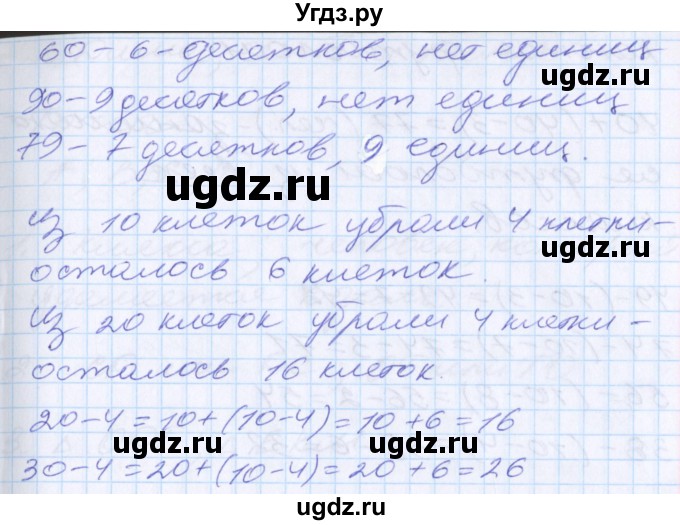 Угдз.ру
60 – 6 – десятков, нет единиц
ugdz.ru
90 – 9 десятков, нет единиц
79 – 7 десятков, 9 единиц.
ugdz.ru
ugdz.ru
Из 10 клеток убрали 4 клетки –
ugdz.ru
осталось 6 клеток.
Из 20 клеток убрали 4 клетки –
ugdz.ru
осталось 16 клеток.
20 – 4 = 10 + (10 – 4) = 10 + 6 = 16
ugdz.ru
ugdz.ru
30 – 4 = 20 + (10 – 4) = 20 + 6 = 26
ugdz.ru